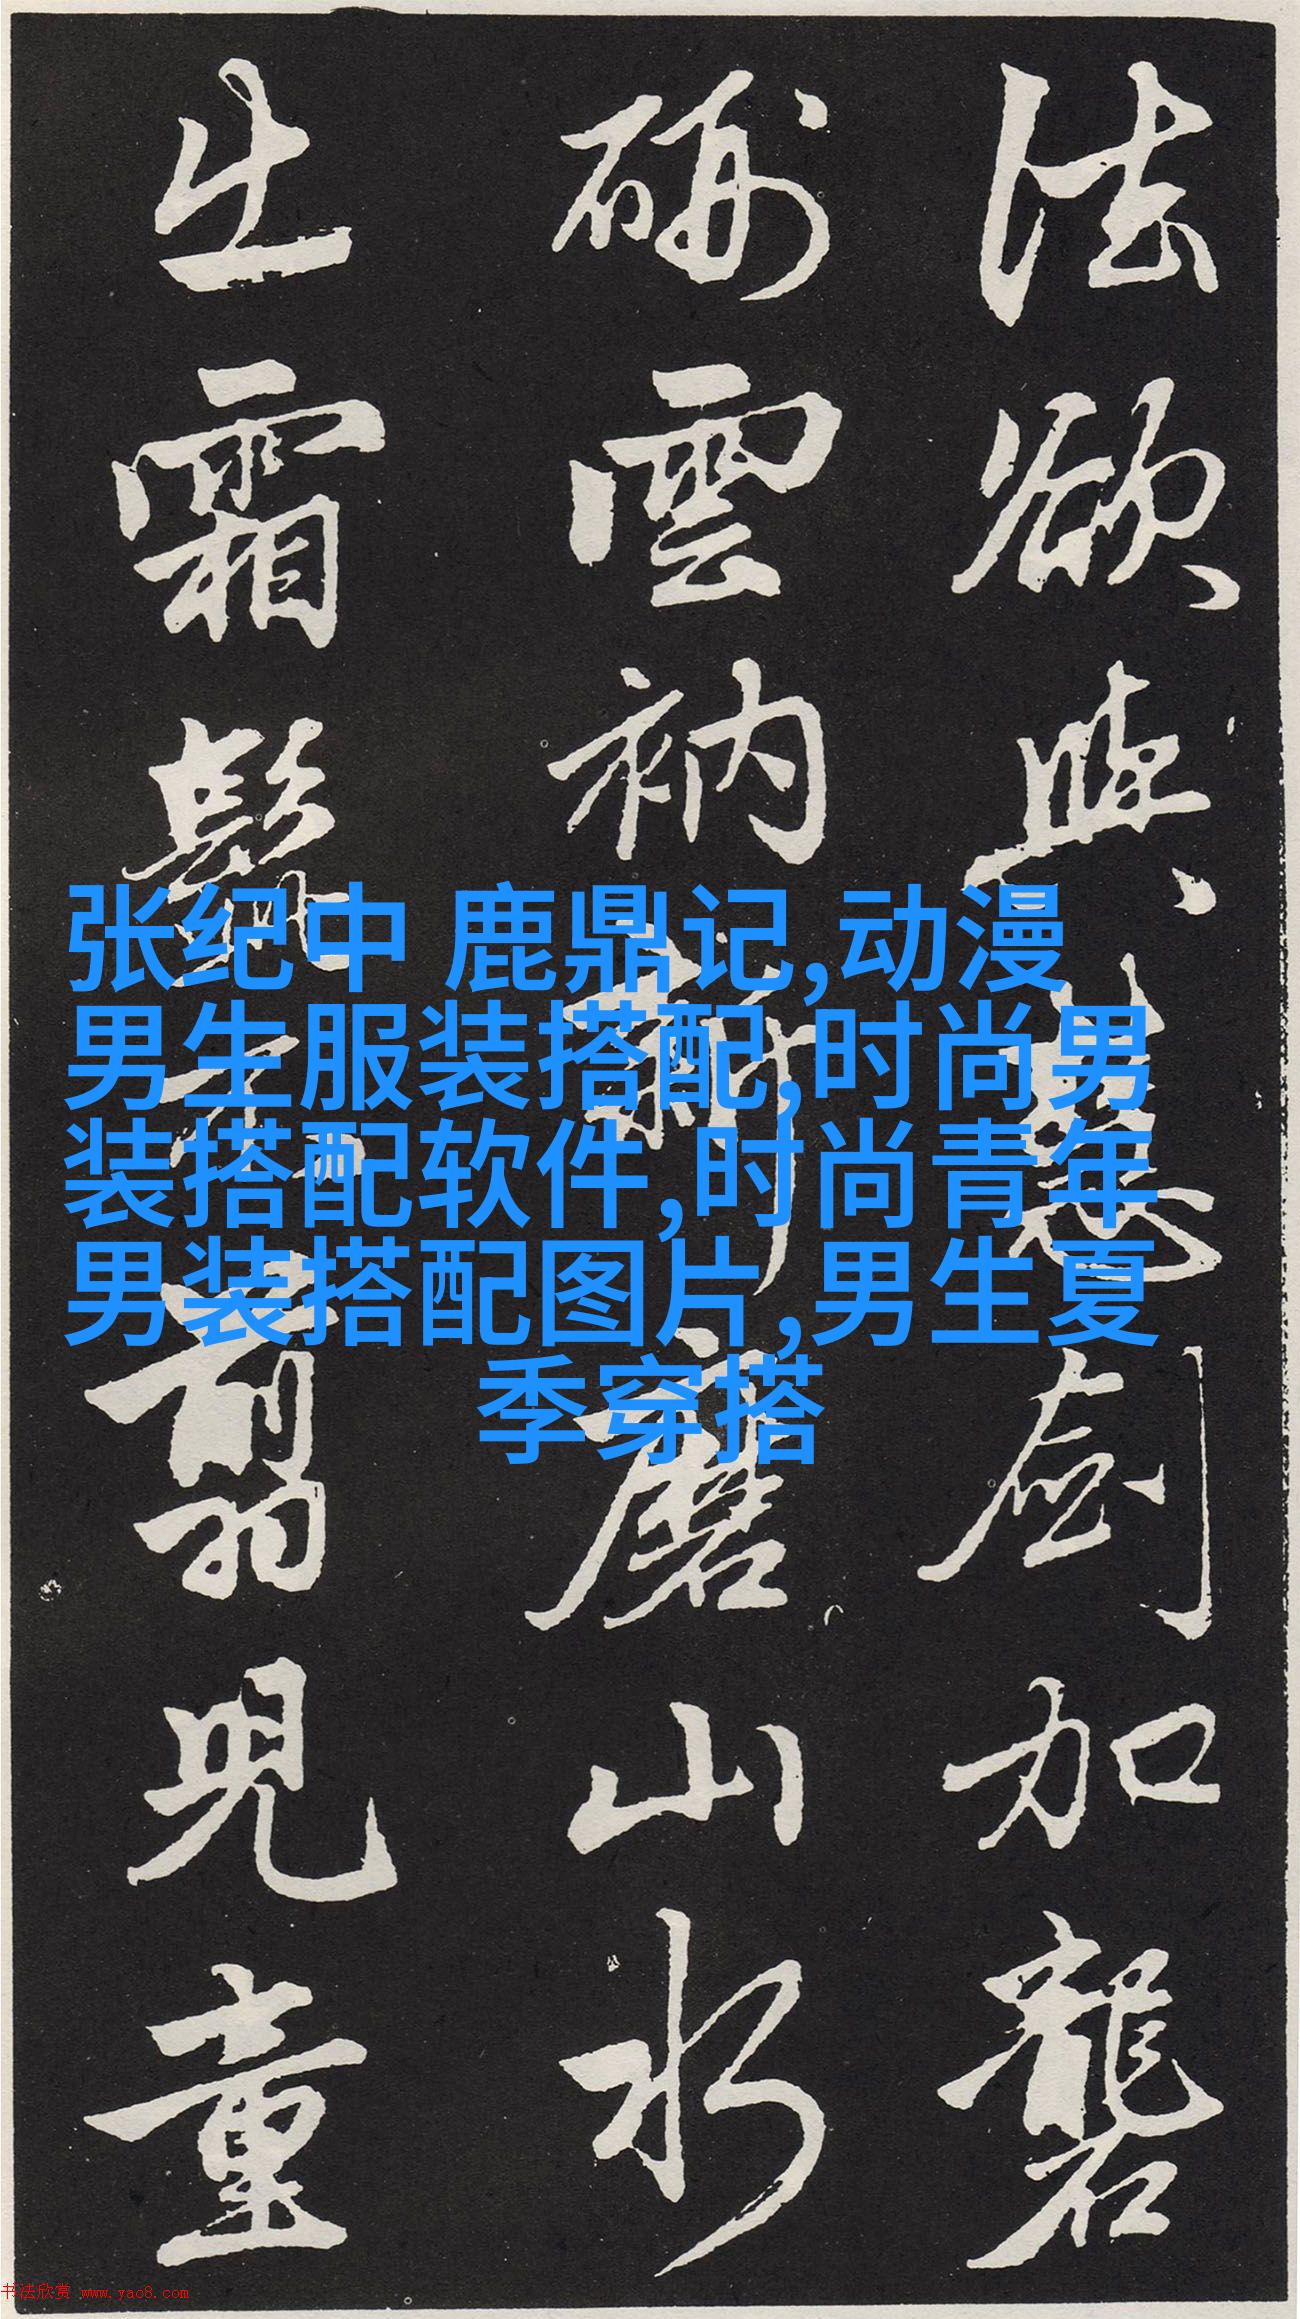 法欲與慧劍加礱
硎雲衲新磨山水
出霜髭不翦兒童
张纪中 鹿鼎记,动漫
男生服装搭配,时尚男
装搭配软件,时尚青年
男装搭配图片,男生夏
季穿搭
书法欣赏 www.yac8.com